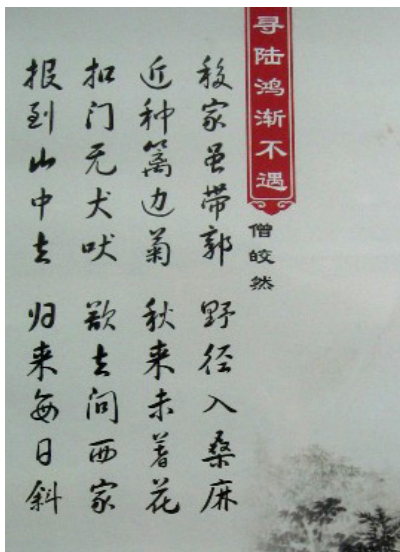 寻陆鸿渐不遇
僧皎然
移家虽带郭 野径入桑麻
近种篱边菊 秋来未著花
扣门无犬吠 欲去问西家
报到山中去 归来每日斜